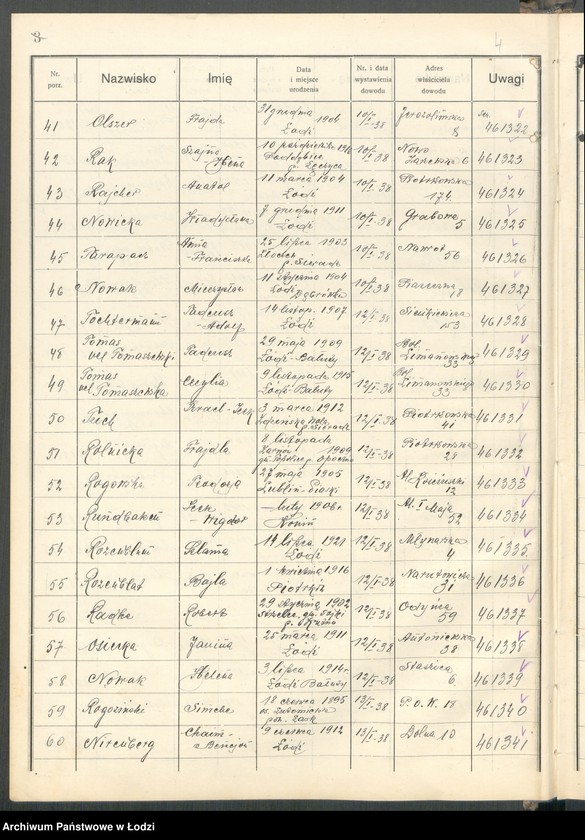 3
4
Nr. porz. Nazwisko Imię Data i miejsce urodzenia Nr. i data wystawienia dowodu Adres właściciela dowodu Uwagi
41 Olszer Frajda 31 grudnia 1906 Łódź 10/I-38 Jerozolimska 8 Ser. 461322
42 Rak 10 października Poddębice p. Łęczyca 10/I-38 Nowo Zarzewska 6 461323
43 Rajcher Anatol 11 marca 1904 Łódź 10/I-38 Piotrkowska 174 461324
44 Nowicka Władysława 7 grudnia 1911 Łódź 10/I-38 Grabowa 5 461325
45 Anna Franciszka 25 lipca 1903 p. Sieradz 10/I-38 Nawrot 56 461326
46 Nowak Mieczysław 11 stycznia 1904 Łódź Dąbrówka 10/I-38 18 461327
47 Tochtermann Tadeusz Adolf 14 listop. 1907 Łódź 12/I-38 Sienkiewicza 153 461328
48 Tomas vel Tomaszewski Tadeusz 29 maja 1909 Łódź-Bałuty 12/I-38 Bol. Limanowskiego 33 461329
49 Tomas vel Tomaszewska Cecylia 9 listopada 1915 Łódź-Bałuty 12/I-38 Bol. Limanowskiego 33 461330
50 3 marca 1912 p. Sieradz 12/I-38 Piotrkowska 41 461331
51 Rolnicka Frajdla 8 listopada 1909 p. Opoczno 12/I-38 Piotrkowska 28 461332
52 27 maja 1905 Lublin 12/I-38 Al. Kościuszki 12 461333
53 Icek Wigdor — luty 1906r. Konin 12/I-38 Al. I Maja 52 461334
54 Rozenblum Salama 14 lipca 1921 Łódź 12/I-38 Młynarska 4 461335
55 Rozenblat Bajla 1 kwietnia 1916 Piotrków 12/I-38 Narutowicza 31 461336
56 Radke Robert 29 stycznia 1902 12/I-38 Ordynia 59 461337
57 Osiecka Janina 25 marca 1911 Łódź 12/I-38 Antoniewska 38 461338
58 Nowak Helena 3 lipca 1914r. Łódź Bałuty 12/I-38 Staszica 6 461339
59 Rogoziński Simcha 18 czerwca 1895 os. Lutomiersk pow. Łask 13/I-38 P.O.W. 18 461340
60 Nirenberg Chaim- 9 czerwca 1912 Łódź 13/I-38 Dolna 10 461341
Archiwum Państwowe w Łodzi